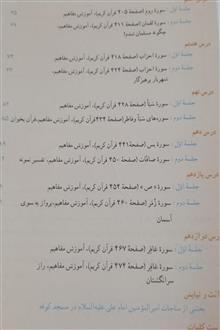 جلسهٔ اول : سورهٔ روم (صفحهٔ ۴۰۵ قرآن کریم)، آموزش مفاهیم ۷۵
جلسهٔ دوم : سورهٔ لقمان (صفحهٔ ۴۱۱ قرآن کریم)، آموزش مفاهیم،
چگونه مسلمان شدم؟
درس هشتم
جلسهٔ اول : سورهٔ احزاب (صفحهٔ ۴۱۸ قرآن کریم)، آموزش مفاهیم
جلسهٔ دوم : سورهٔ احزاب (صفحهٔ ۴۲۲ قرآن کریم)، آموزش مفاهیم،
شهریار پرهیزگار
درس نهم
جلسهٔ اول : سورهٔ سَبَأ (صفحهٔ ۴۲۸ قرآن کریم)، آموزش مفاهیم
جلسهٔ دوم : سوره‌های سَبَأ و فاطر (صفحهٔ ۴۳۴ قرآن کریم)، آموزش مفاهیم، قرآن بخوان
درس دهم
جلسهٔ اول : سورهٔ یس (صفحهٔ ۴۴۱ قرآن کریم)، آموزش مفاهیم
جلسهٔ دوم : سورهٔ صافّات (صفحهٔ ۴۵۰ قرآن کریم)، آموزش مفاهیم، تفسیر نمونه
درس یازدهم
جلسهٔ اول : سورهٔ « ص » (صفحهٔ ۴۵۴ قرآن کریم)، آموزش مفاهیم
جلسهٔ دوم : سورهٔ زُمَر (صفحهٔ ۴۶۰ قرآن کریم)، آموزش مفاهیم، پرواز به سوی
آسمان
درس دوازدهم
جلسهٔ اول : سورهٔ غافِر (صفحهٔ ۴۶۷ قرآن کریم)، آموزش مفاهیم
جلسهٔ دوم : سورهٔ غافِر (صفحهٔ ۴۷۴ قرآن کریم)، آموزش مفاهیم، راز
سرانگشتان
و نیایش
بخشی از مناجات امیرالمؤمنین امام علی علیه‌السلام در مسجد کوفه
کلمات